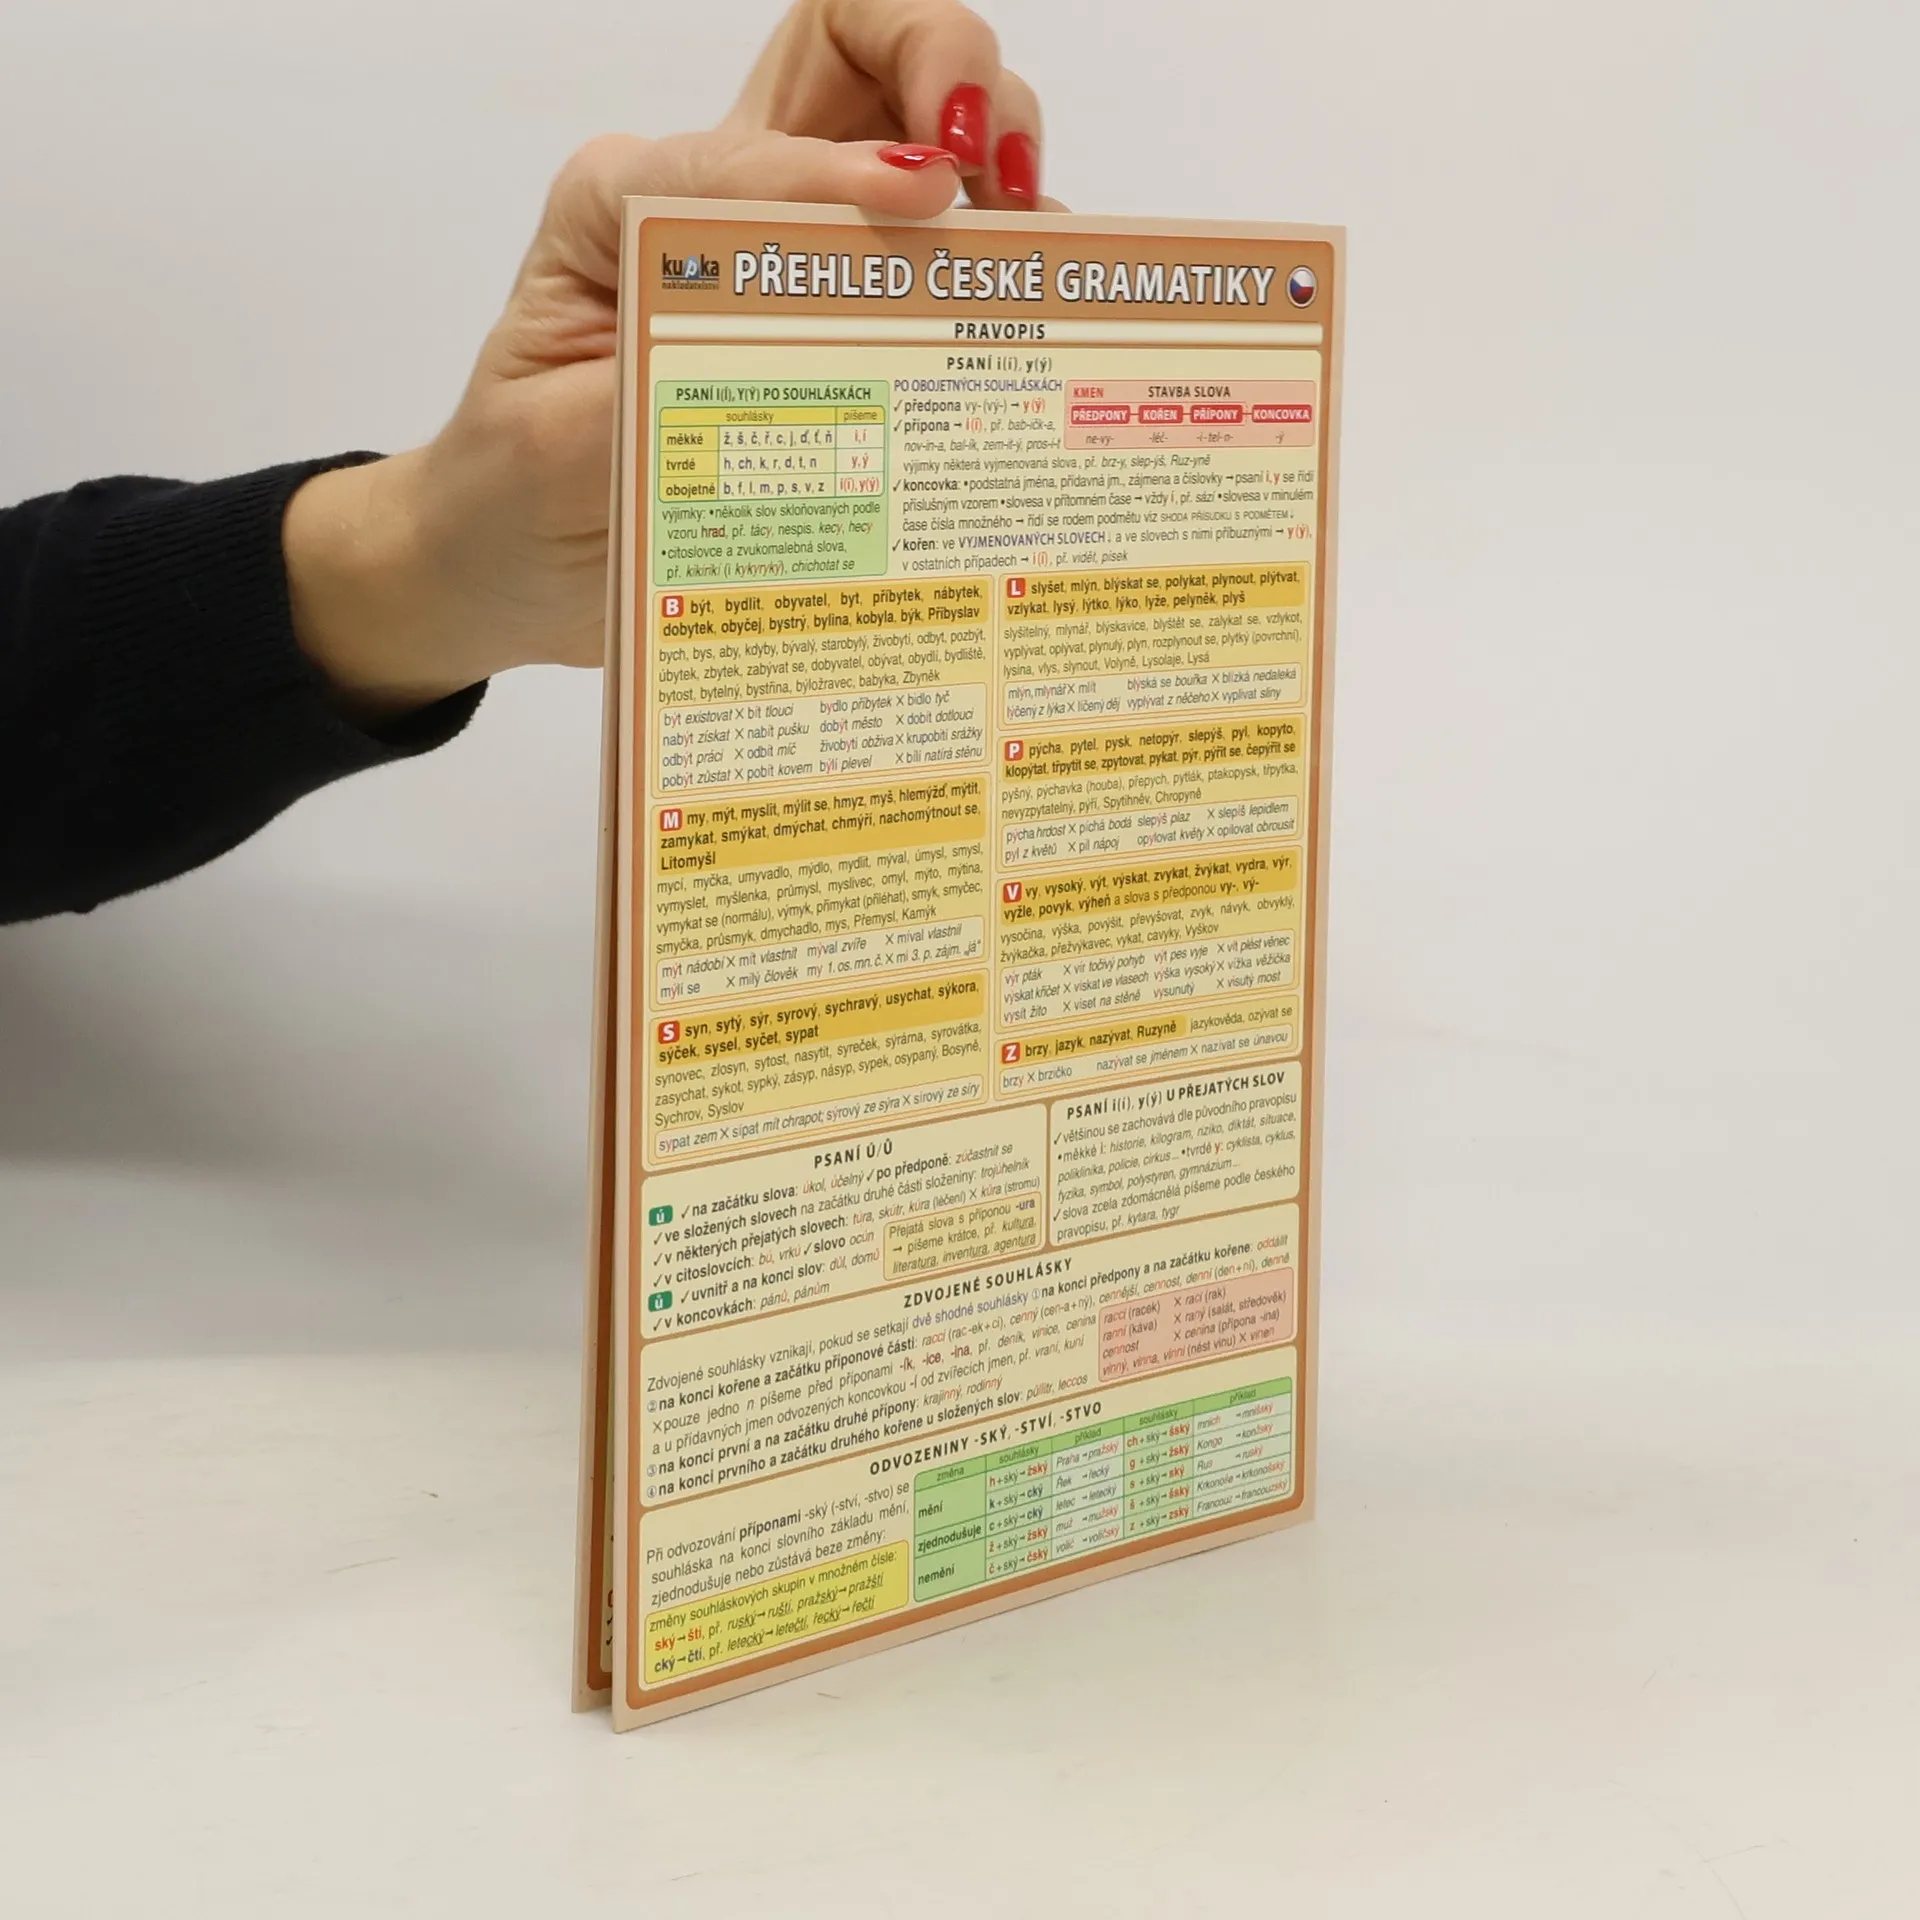 kupka
nakladatelství
PŘEHLED ČESKÉ GRAMATIKY
PRAVOPIS
PSANÍ i(í), y(ý)
PSANÍ I(Í), Y(Ý) PO SOUHLÁSKÁCH
souhlásky píšeme
měkké ž, š, č, ř, c, j, ď, ť, ň i, í
tvrdé h, ch, k, r, d, t, n y, ý
obojetné b, f, l, m, p, s, v, z i(í), y(ý)
výjimky: •několik slov skloňovaných podle
vzoru hrad, př. tácy, nespis. kecy, hecy
•citoslovce a zvukomalebná slova,
př. kikirikí (i kykyryký), chichotat se
PO OBOJETNÝCH SOUHLÁSKÁCH
✓předpona vy- (vý-) → y (ý)
✓přípona → i(í), př. bab-ičk-a,
nov-in-a, bal-ík, zem-it-ý, pros-i-t
výjimky některá vyjmenovaná slova, př. brz-y, slep-ýš, Ruz-yně
✓koncovka: •podstatná jména, přídavná jm., zájmena a číslovky →psaní i, y se řídí
příslušným vzorem •slovesa v přítomném čase → vždy í, př. sází •slovesa v minulém
čase čísla množného → řídí se rodem podmětu viz SHODA PŘÍSUDKU S PODMĚTEM↓
✓kořen: ve VYJMENOVANÝCH SLOVECH↓ a ve slovech s nimi příbuznými → y(ý),
v ostatních případech → i(í), př. vidět, písek
KMEN STAVBA SLOVA
PŘEDPONY KOŘEN PŘÍPONY KONCOVKA
ne-vy- -léč- -i-tel-n- -ý
B být, bydlit, obyvatel, byt, příbytek, nábytek,
dobytek, obyčej, bystrý, bylina, kobyla, býk, Přibyslav
bych, bys, aby, kdyby, bývalý, starobylý, živobytí, odbyt, pozbýt,
úbytek, zbytek, zabývat se, dobyvatel, obývat, obydlí, bydliště,
bytost, bytelný, bystřina, býložravec, babyka, Zbyněk
být existovat X bít tlouci bydlo příbytek X bidlo tyč
nabýt získat X nabít pušku dobýt město X dobít dotlouci
odbýt práci X odbít míč živobytí obživa X krupobití srážky
pobýt zůstat X pobít kovem býlí plevel X bílí natírá stěnu
M my, mýt, myslit, mýlit se, hmyz, myš, hlemýžď, mýtit,
zamykat, smýkat, dmýchat, chmýří, nachomýtnout se,
Litomyšl
mycí, myčka, umyvadlo, mýdlo, mydlit, mýval, úmysl, smysl,
vymyslet, myšlenka, průmysl, myslivec, omyl, mýto, mýtina,
vymykat se (normálu), výmyk, přimykat (přiléhat), smyk, smyčec,
smyčka, průsmyk, dmychadlo, mys, Přemysl, Kamýk
mýt nádobí X mít vlastnit mýval zvíře X míval vlastnil
mýlí se X milý člověk my 1. os. mn. č. X mi 3. p. zájm. „já“
S syn, sytý, sýr, syrový, sychravý, usychat, sýkora,
sýček, sysel, syčet, sypat
synovec, zlosyn, sytost, nasytit, syreček, sýrárna, syrovátka,
zasychat, sykot, sypký, zásyp, násyp, sypek, osypaný, Bosyně,
Sychrov, Syslov
sypat zem X sípat mít chrapot; sýrový ze sýra X sírový ze síry
L slyšet, mlýn, blýskat se, polykat, plynout, plýtvat,
vzlykat, lysý, lýtko, lýko, lyže, pelyněk, plyš
slyšitelný, mlynář, blýskavice, blyštět se, zalykat se, vzlykot,
vyplývat, oplývat, plynulý, plyn, rozplynout se, plytký (povrchní),
lysina, vlys, slynout, Volyně, Lysolaje, Lysá
mlýn, mlynář X mlít blýská se bouřka X blízká nedaleká
lýčený z lýka X líčený děj vyplývat z něčeho X vyplivat sliny
P pýcha, pytel, pysk, netopýr, slepýš, pyl, kopyto,
klopýtat, třpytit se, zpytovat, pykat, pýr, pýřit se, čepýřit se
pyšný, pýchavka (houba), přepych, pytlák, ptakopysk, třpytka,
nevyzpytatelný, pýří, Spytihněv, Chropyně
pýcha hrdost X píchá bodá slepýš plaz X slepíš lepidlem
pyl z květů X pil nápoj opylovat květy X opilovat obrousit
V vy, vysoký, výt, výskat, zvykat, žvýkat, vydra, výr,
vyžle, povyk, výheň a slova s předponou vy-, vý-
vysočina, výška, povýšit, převyšovat, zvyk, návyk, obvyklý,
žvýkačka, přežvýkavec, vykat, cavyky, Vyškov
výr pták X vír točivý pohyb výt pes vyje X vít plést věnec
výskat křičet X vískat ve vlasech výška vysoký X vížka věžička
vysít žito X viset na stěně vysunutý X visutý most
Z brzy, jazyk, nazývat, Ruzyně jazykověda, ozývat se
brzy X brzičko nazývat se jménem X nazívat se únavou
PSANÍ Ú/Ů
ú ✓na začátku slova: úkol, účelný ✓po předponě: zúčastnit se
✓ve složených slovech na začátku druhé části složeniny: trojúhelník
✓v některých přejatých slovech: túra, skútr, kúra (léčení) X kůra (stromu)
✓v citoslovcích: bú, vrkú ✓slovo ocún
ů ✓uvnitř a na konci slov: důl, domů
✓v koncovkách: pánů, pánům
Přejatá slova s příponou -ura
→ píšeme krátce, př. kultura,
literatura, inventura, agentura
PSANÍ i(í), y(ý) U PŘEJATÝCH SLOV
✓většinou se zachovává dle původního pravopisu
•měkké i: historie, kilogram, riziko, diktát, situace,
poliklinika, policie, cirkus... •tvrdé y: cyklista, cyklus,
fyzika, symbol, polystyren, gymnázium...
✓slova zcela zdomácnělá píšeme podle českého
pravopisu, př. kytara, tygr
ZDVOJENÉ SOUHLÁSKY
Zdvojené souhlásky vznikají, pokud se setkají dvě shodné souhlásky ①na konci předpony a na začátku kořene: oddálit
②na konci kořene a začátku příponové části: racci (rac-ek+ci), cenný (cen-a+ný), cennější, cennost, denní (den+ní), denně
X pouze jedno n píšeme před příponami -ík, -ice, -ina, př. deník, vinice, cenina
a u přídavných jmen odvozených koncovkou -í od zvířecích jmen, př. vraní, kuní
③na konci první a na začátku druhé přípony: krajinný, rodinný
④na konci prvního a začátku druhého kořene u složených slov: půllitr, leccos
racci (racek) X raci (rak)
ranní (káva) X raný (salát, středověk)
cennost X cenina (přípona -ina)
vinný, vinna, vinni (nést vinu) X vinen
ODVOZENINY -SKÝ, -STVÍ, -STVO
Při odvozování příponami -ský (-ství, -stvo) se
souhláska na konci slovního základu mění,
zjednodušuje nebo zůstává beze změny:
změny souhláskových skupin v množném čísle:
ský→ští, př. ruský→ruští, pražský→pražští
cký→čtí, př. letecký→letečtí, řecký→řečtí
změna souhlásky příklad souhlásky příklad
mění h+ský→žský Praha→pražský ch+ský→šský mnich→mnišský
k+ský→cký Řek→řecký g+ský→žský Kongo→konžský
zjednodušuje c+ský→cký letec→letecký s+ský→ský Rus→ruský
nemění ž+ský→žský muž→mužský š+ský→šský Krkonoše→krkonošský
č+ský→čský volič→voličský z+ský→zský Francouz→francouzský